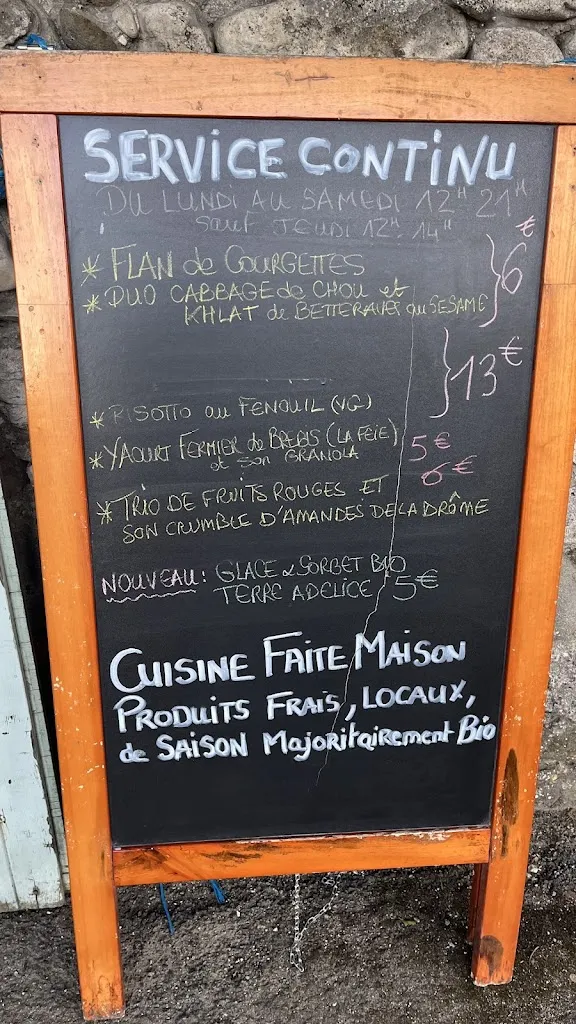 SERVICE CONTINU
DU LUNDI AU SAMEDI 12H 21H
SAUF JEUDI 12H 14H
* FLAN de COURGETTES
* DUO CABBAGE de CHOU et } 6€
KHLAT de BETTERAVES au SESAME
} 13€
* RISOTTO au FENOUIL (VG)
* YAOURT FERMIER de BREBIS (LA FÉIE) 5€
et SON GRANOLA 6€
* TRIO DE FRUITS ROUGES ET
SON CRUMBLE D'AMANDES DE LA DRÔME
NOUVEAU : GLACE & SORBET BIO
TERRE ADELICE 5€
CUISINE FAITE MAISON
PRODUITS FRAIS, LOCAUX,
de SAISON MajoritAirement Bio